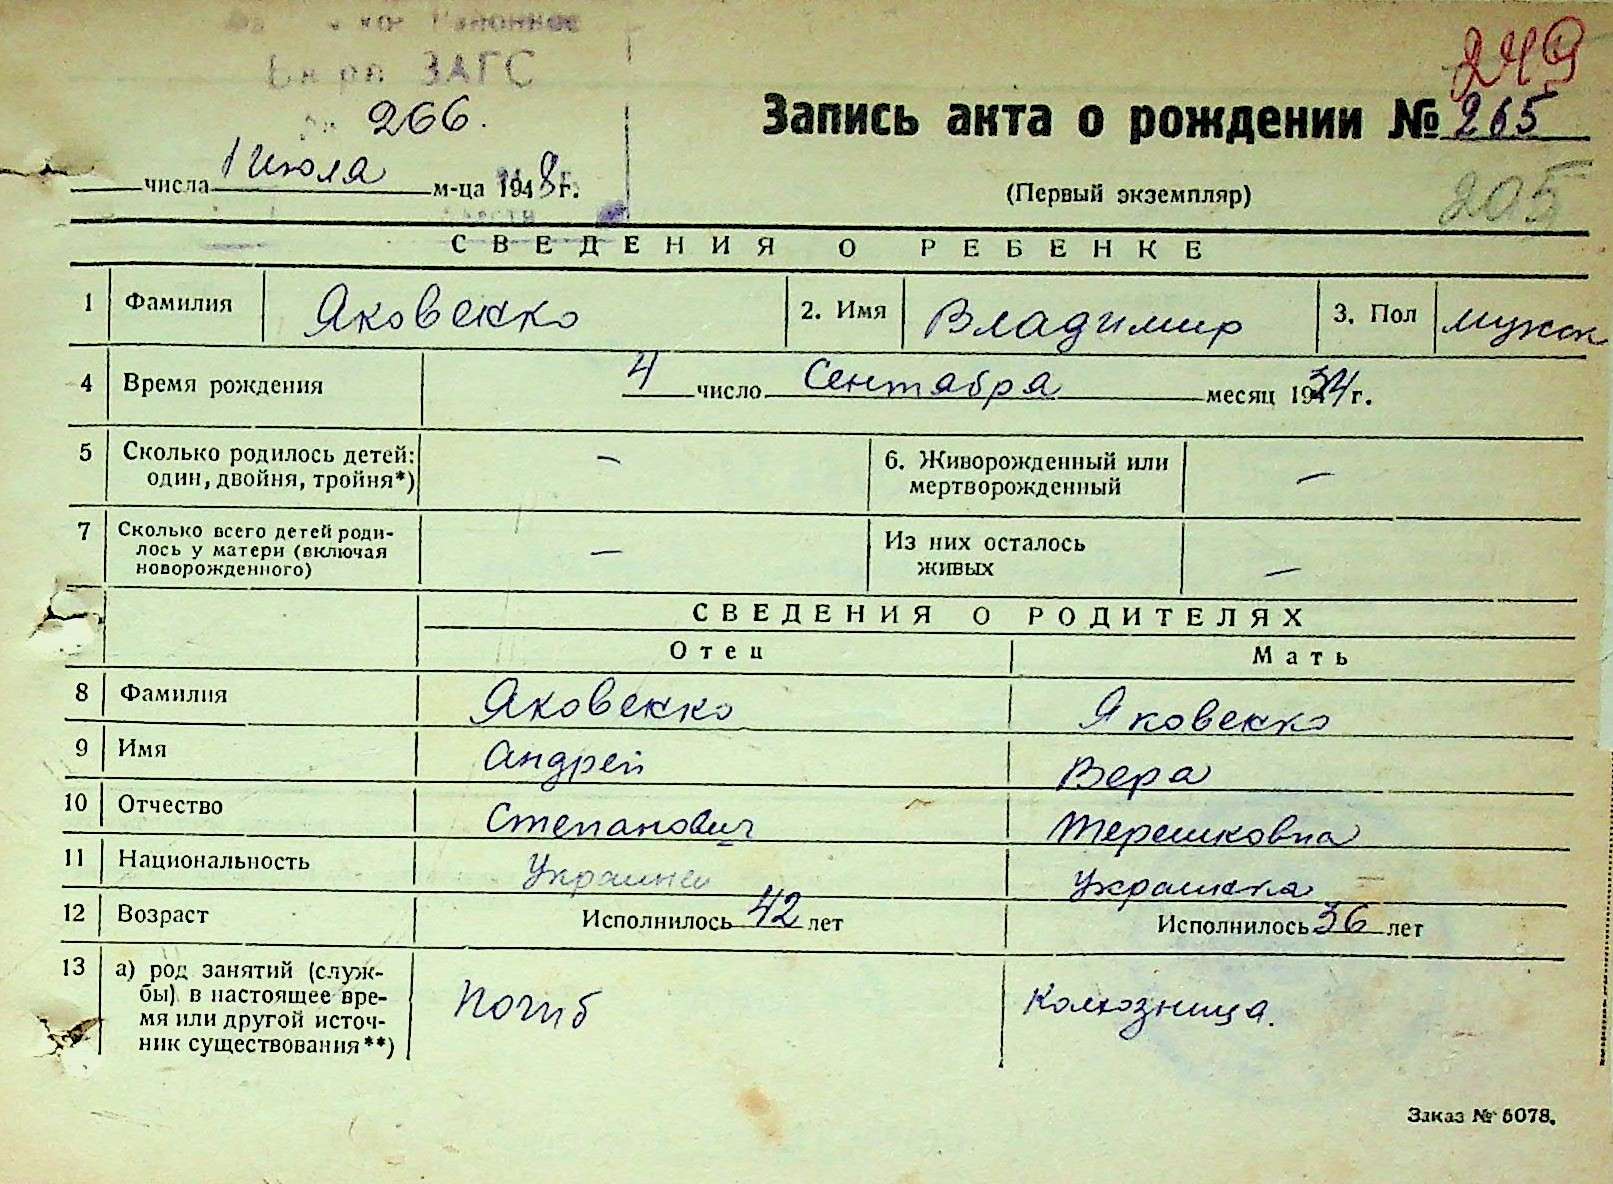 Районное
Бюро ЗАГС
249
266.
Запись акта о рождении № 265
числа 1 Июля м-ца 1948 г.
(Первый экземпляр)
205
СВЕДЕНИЯ О РЕБЕНКЕ
1 Фамилия Яковенко 2. Имя Владимир 3. Пол мужск
4 Время рождения 4 число Сентября месяц 1934 г.
5 Сколько родилось детей: один, двойня, тройня*) — 6. Живорожденный или мертворожденный —
7 Сколько всего детей родилось у матери (включая новорожденного) — Из них осталось живых —
СВЕДЕНИЯ О РОДИТЕЛЯХ
Отец Мать
8 Фамилия Яковенко Яковенко
9 Имя Андрей Вера
10 Отчество Степанович Терешковна
11 Национальность Украинец Украинка
12 Возраст Исполнилось 42 лет Исполнилось 36 лет
13 а) род занятий (службы) в настоящее время или другой источник существования**) Погиб Колхозница.
Заказ № 5078.